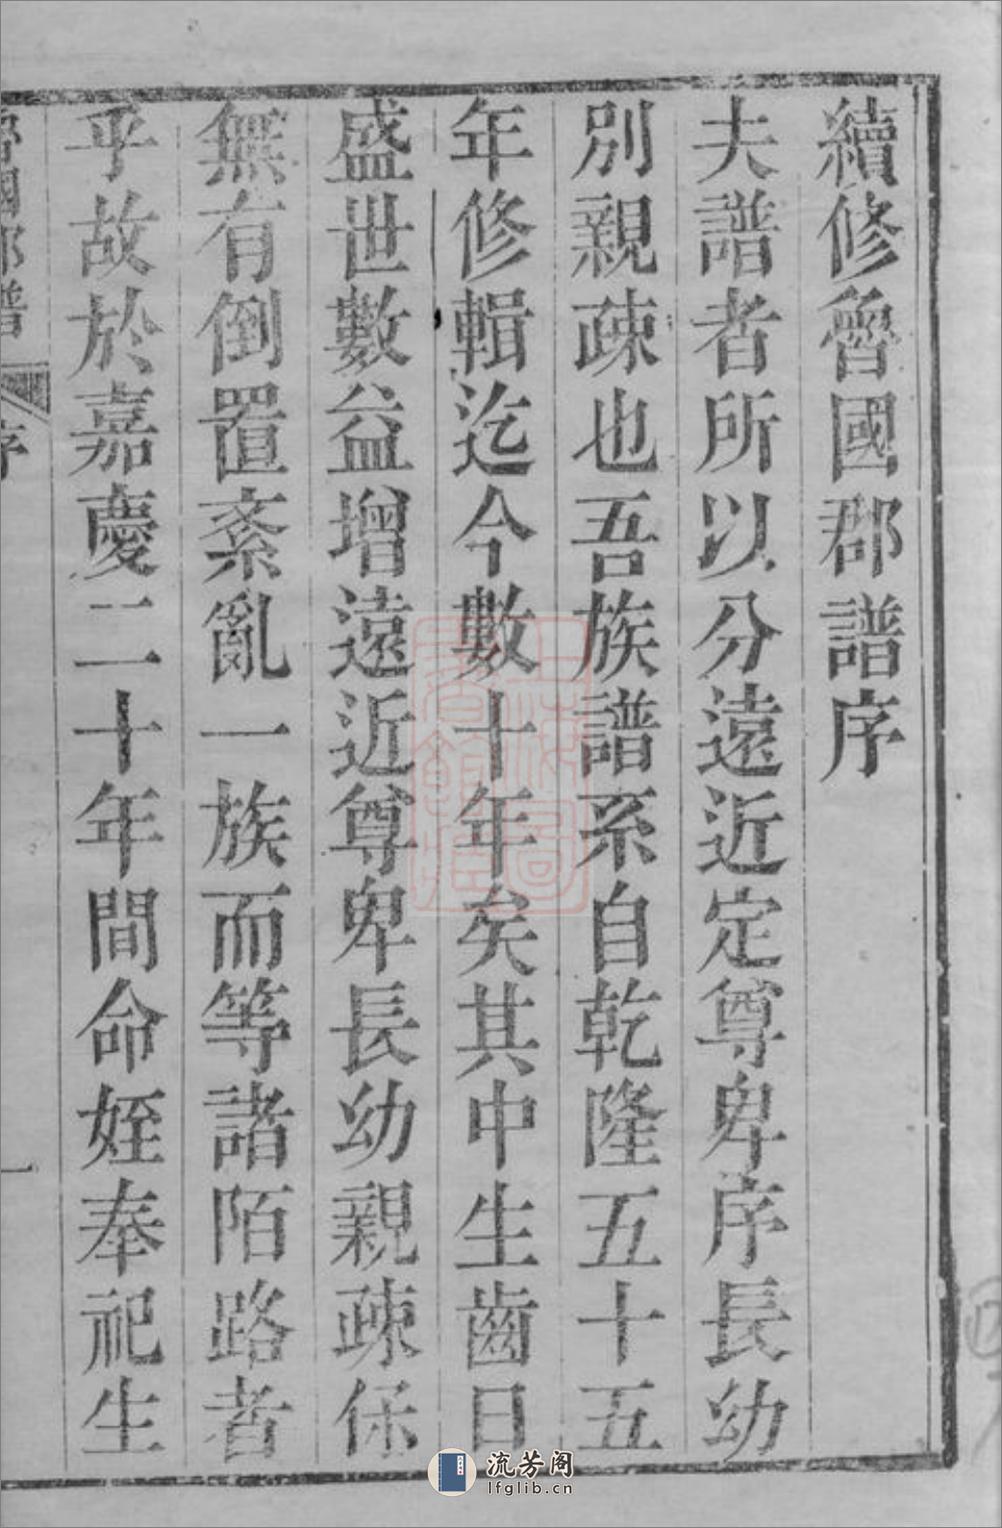 續修魯國郡譜序
夫譜者所以分遠近定尊卑序長幼
別親疎也吾族譜系自乾隆五十五
年修輯迄今數十年矣其中生齒日
盛世數益增遠近尊卑長幼親疎保
無有倒置紊亂一族而等諸陌路者
乎故於嘉慶二十年間命姪奉祀生
魯國郡譜 序 一
流芳阁
lfglib.cn